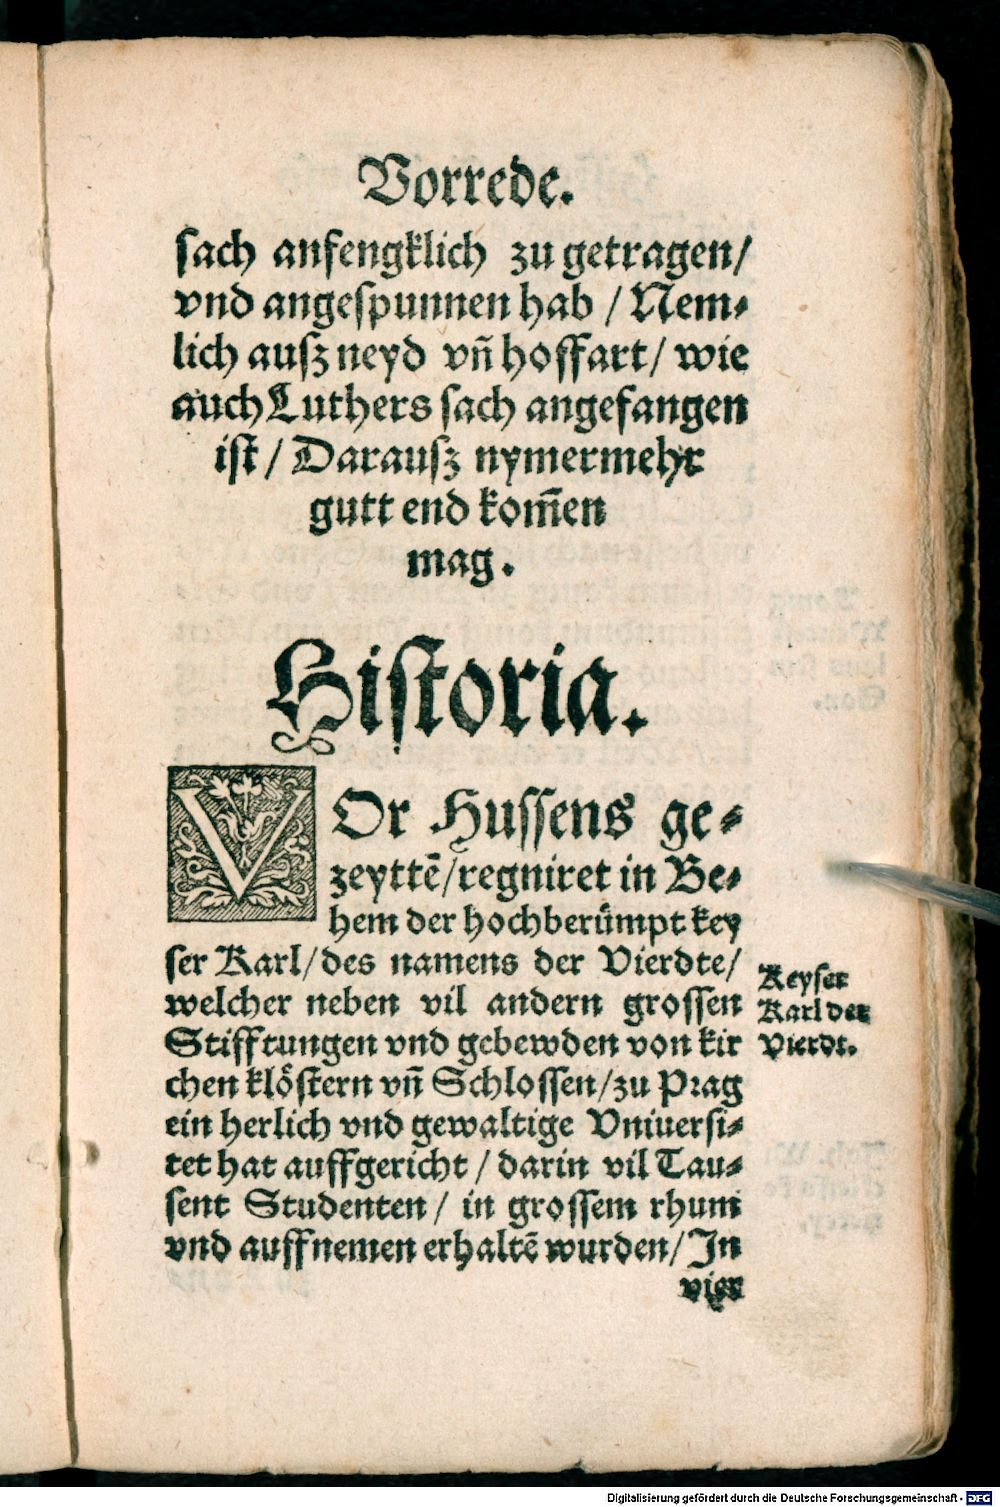 Vorrede.
sach anfengklich zu getragen/
vnd angespunnen hab / Nem⸗
lich ausz neyd vn̄ hoffart/ wie
auch Luthers sach angefangen
ist / Darausz nymermehr
gutt end kom̄en
mag.
Historia.
VOr Hussens ge⸗
zeyttē/regniret in Be⸗
hem der hochberümpt key
ser Karl/des namens der Vierdte/
welcher neben vil andern grossen
Stifftungen vnd gebewden von kir
chen klöstern vn̄ Schlossen/zu Prag
ein herlich vnd gewaltige Vniuersi⸗
tet hat auffgericht / darin vil Tau⸗
sent Studenten / in grossem rhum
vnd auffnemen erhaltē wurden/ In
vier
Keyser
Karl der
Vierdt.
Digitalisierung gefördert durch die Deutsche Forschungsgemeinschaft - DFG